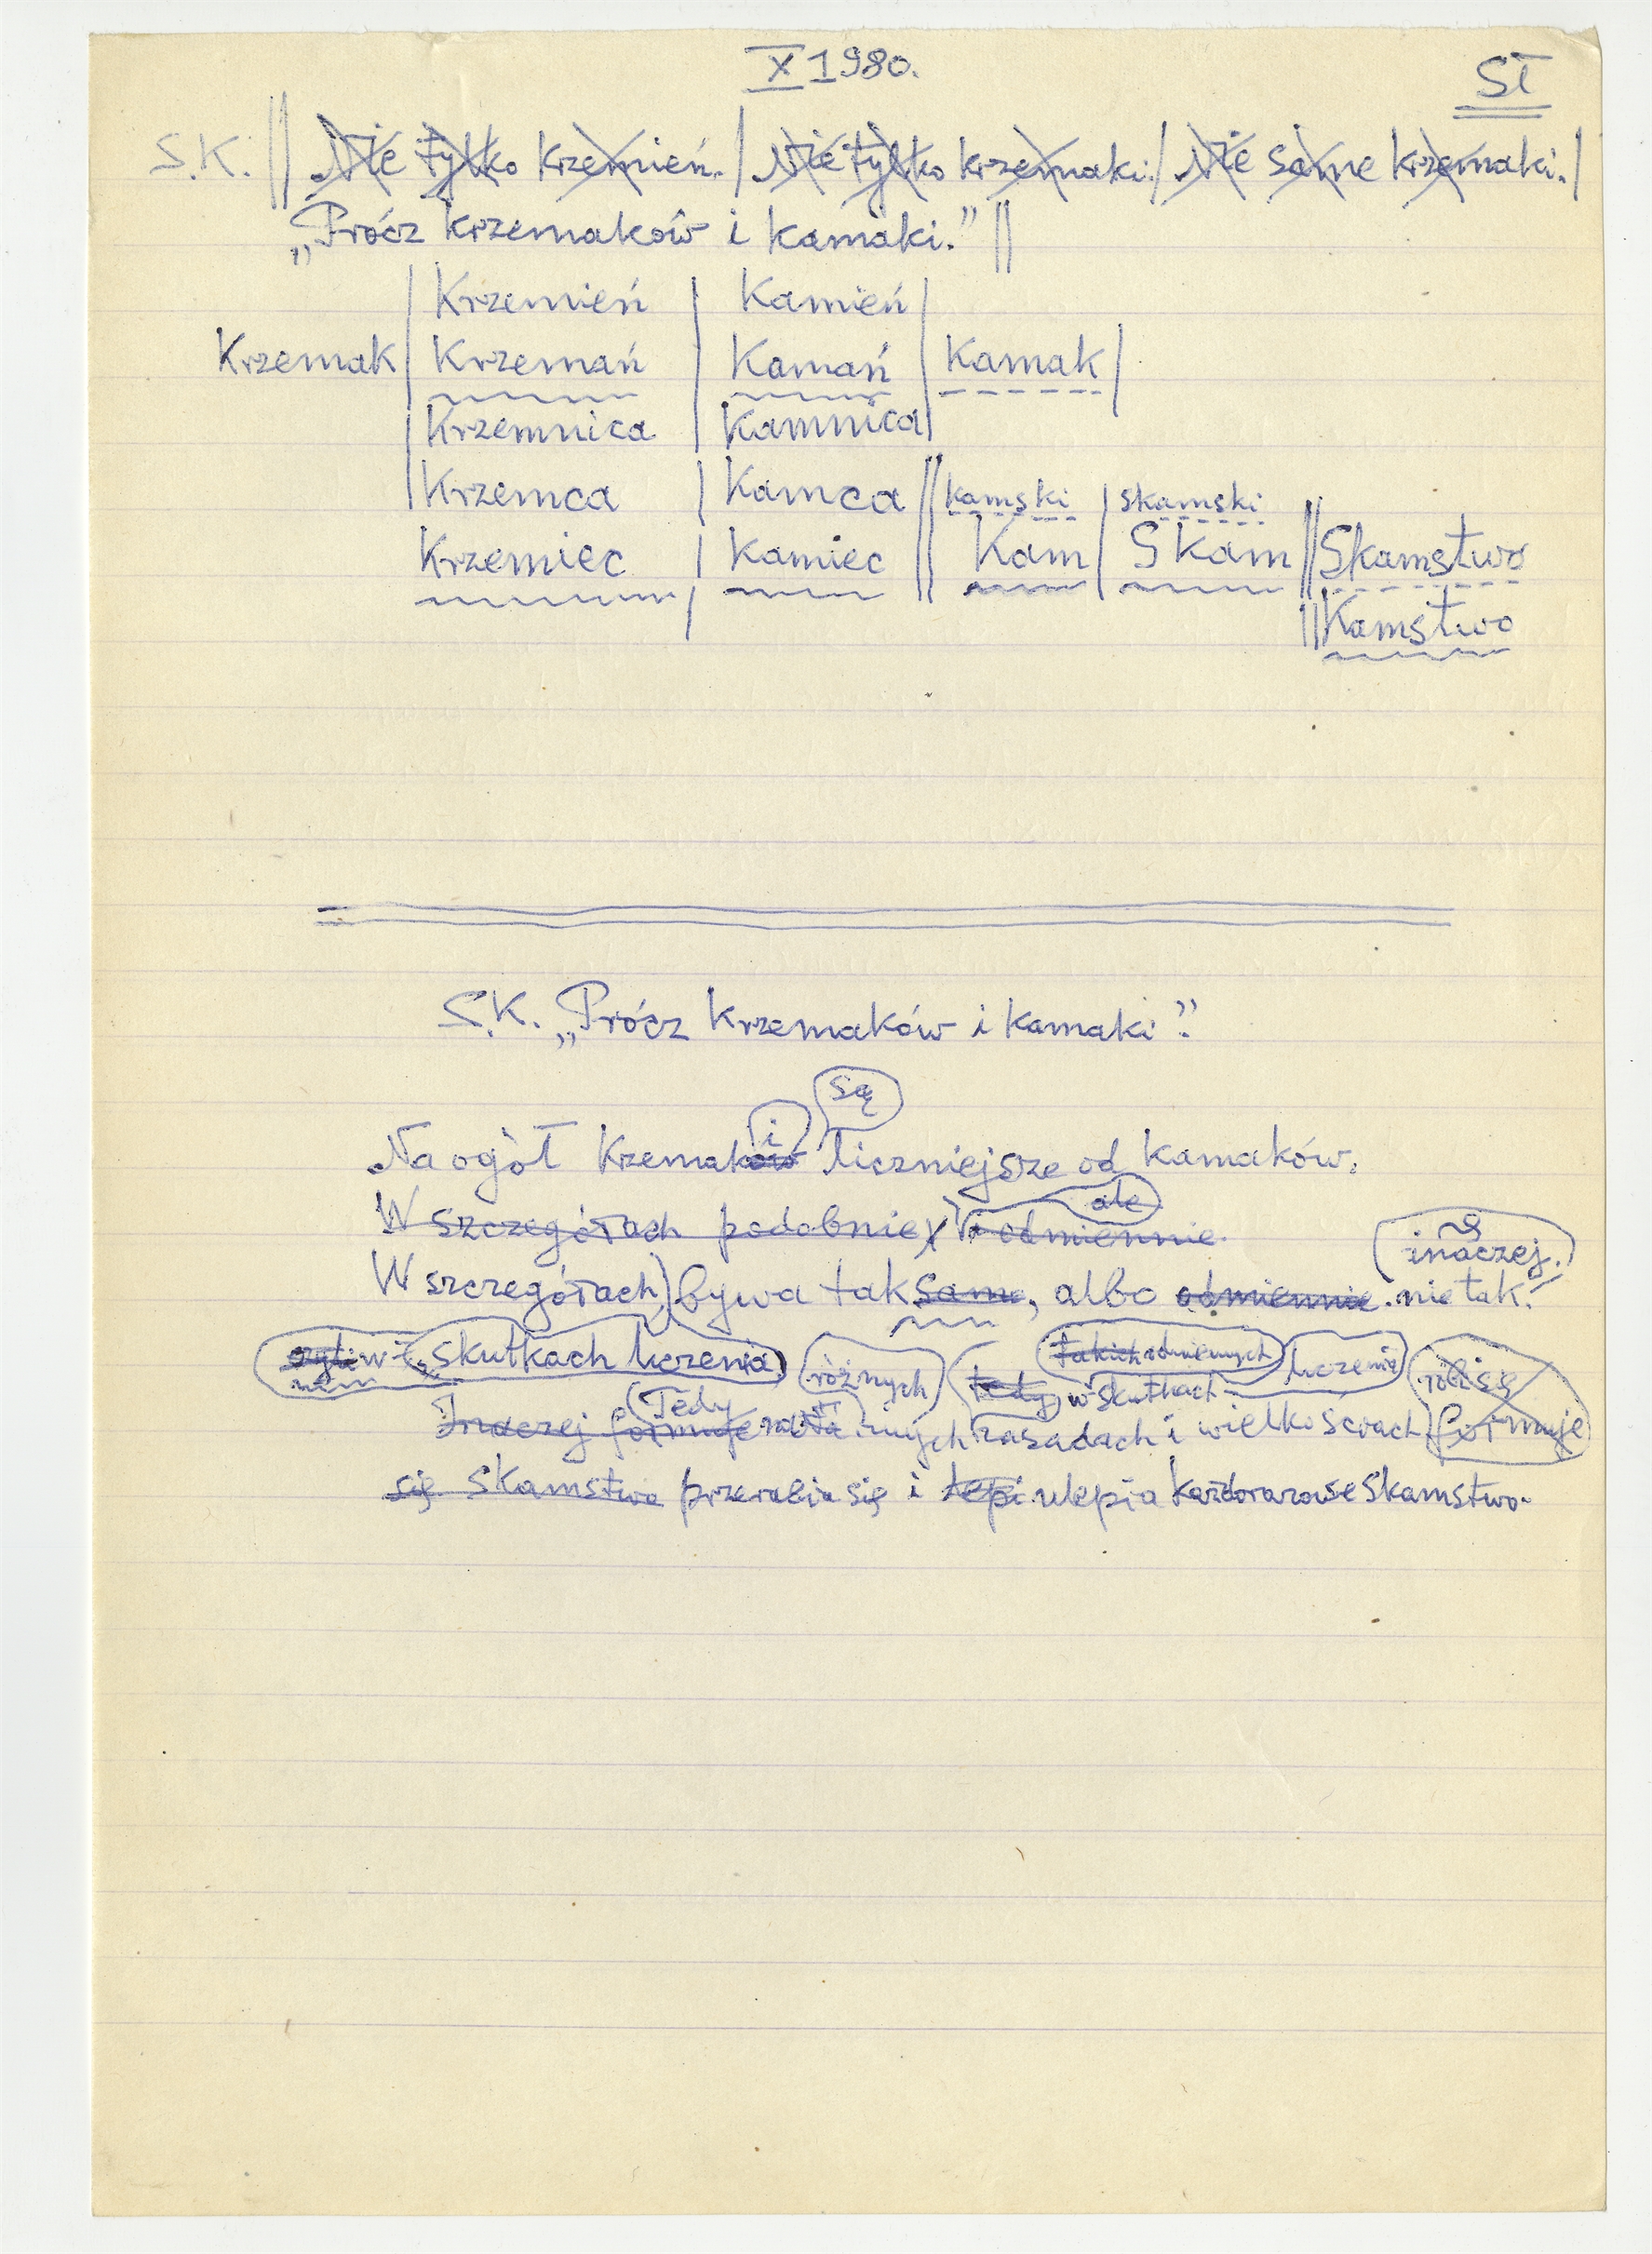 X 1980.
SŁ
S.K. || Nie tylko krzemień. | Nie tylko krzemaki. | Nie same krzemaki. |
„Prócz krzemaków i kamaki.” ||
| Krzemień | Kamień |
Krzemak | Krzemań | Kamań | Kamak |
| Krzemnica | Kamnica |
| Krzemca | Kamca || kamski | skamski
Krzemiec | Kamiec || Kam | Skam || Skamstwo
|| Kamstwo
S.K. „Prócz krzemaków i kamaki”.
są
i
Na ogół krzemaków liczniejsze od kamaków.
ale
W szczegółach podobnie, i odmiennie.
inaczej.
W szczegółach bywa tak samo, albo odmiennie. nie tak.
czyli w skutkach liczenia różnych tedy w skutkach takich odmiennych liczenia robi się
Tedy
Inaczej formuje na innych zasadach i wielkościach formuje
się skamstwo przerabia się i lepi ulepia każdorazowe skamstwo.